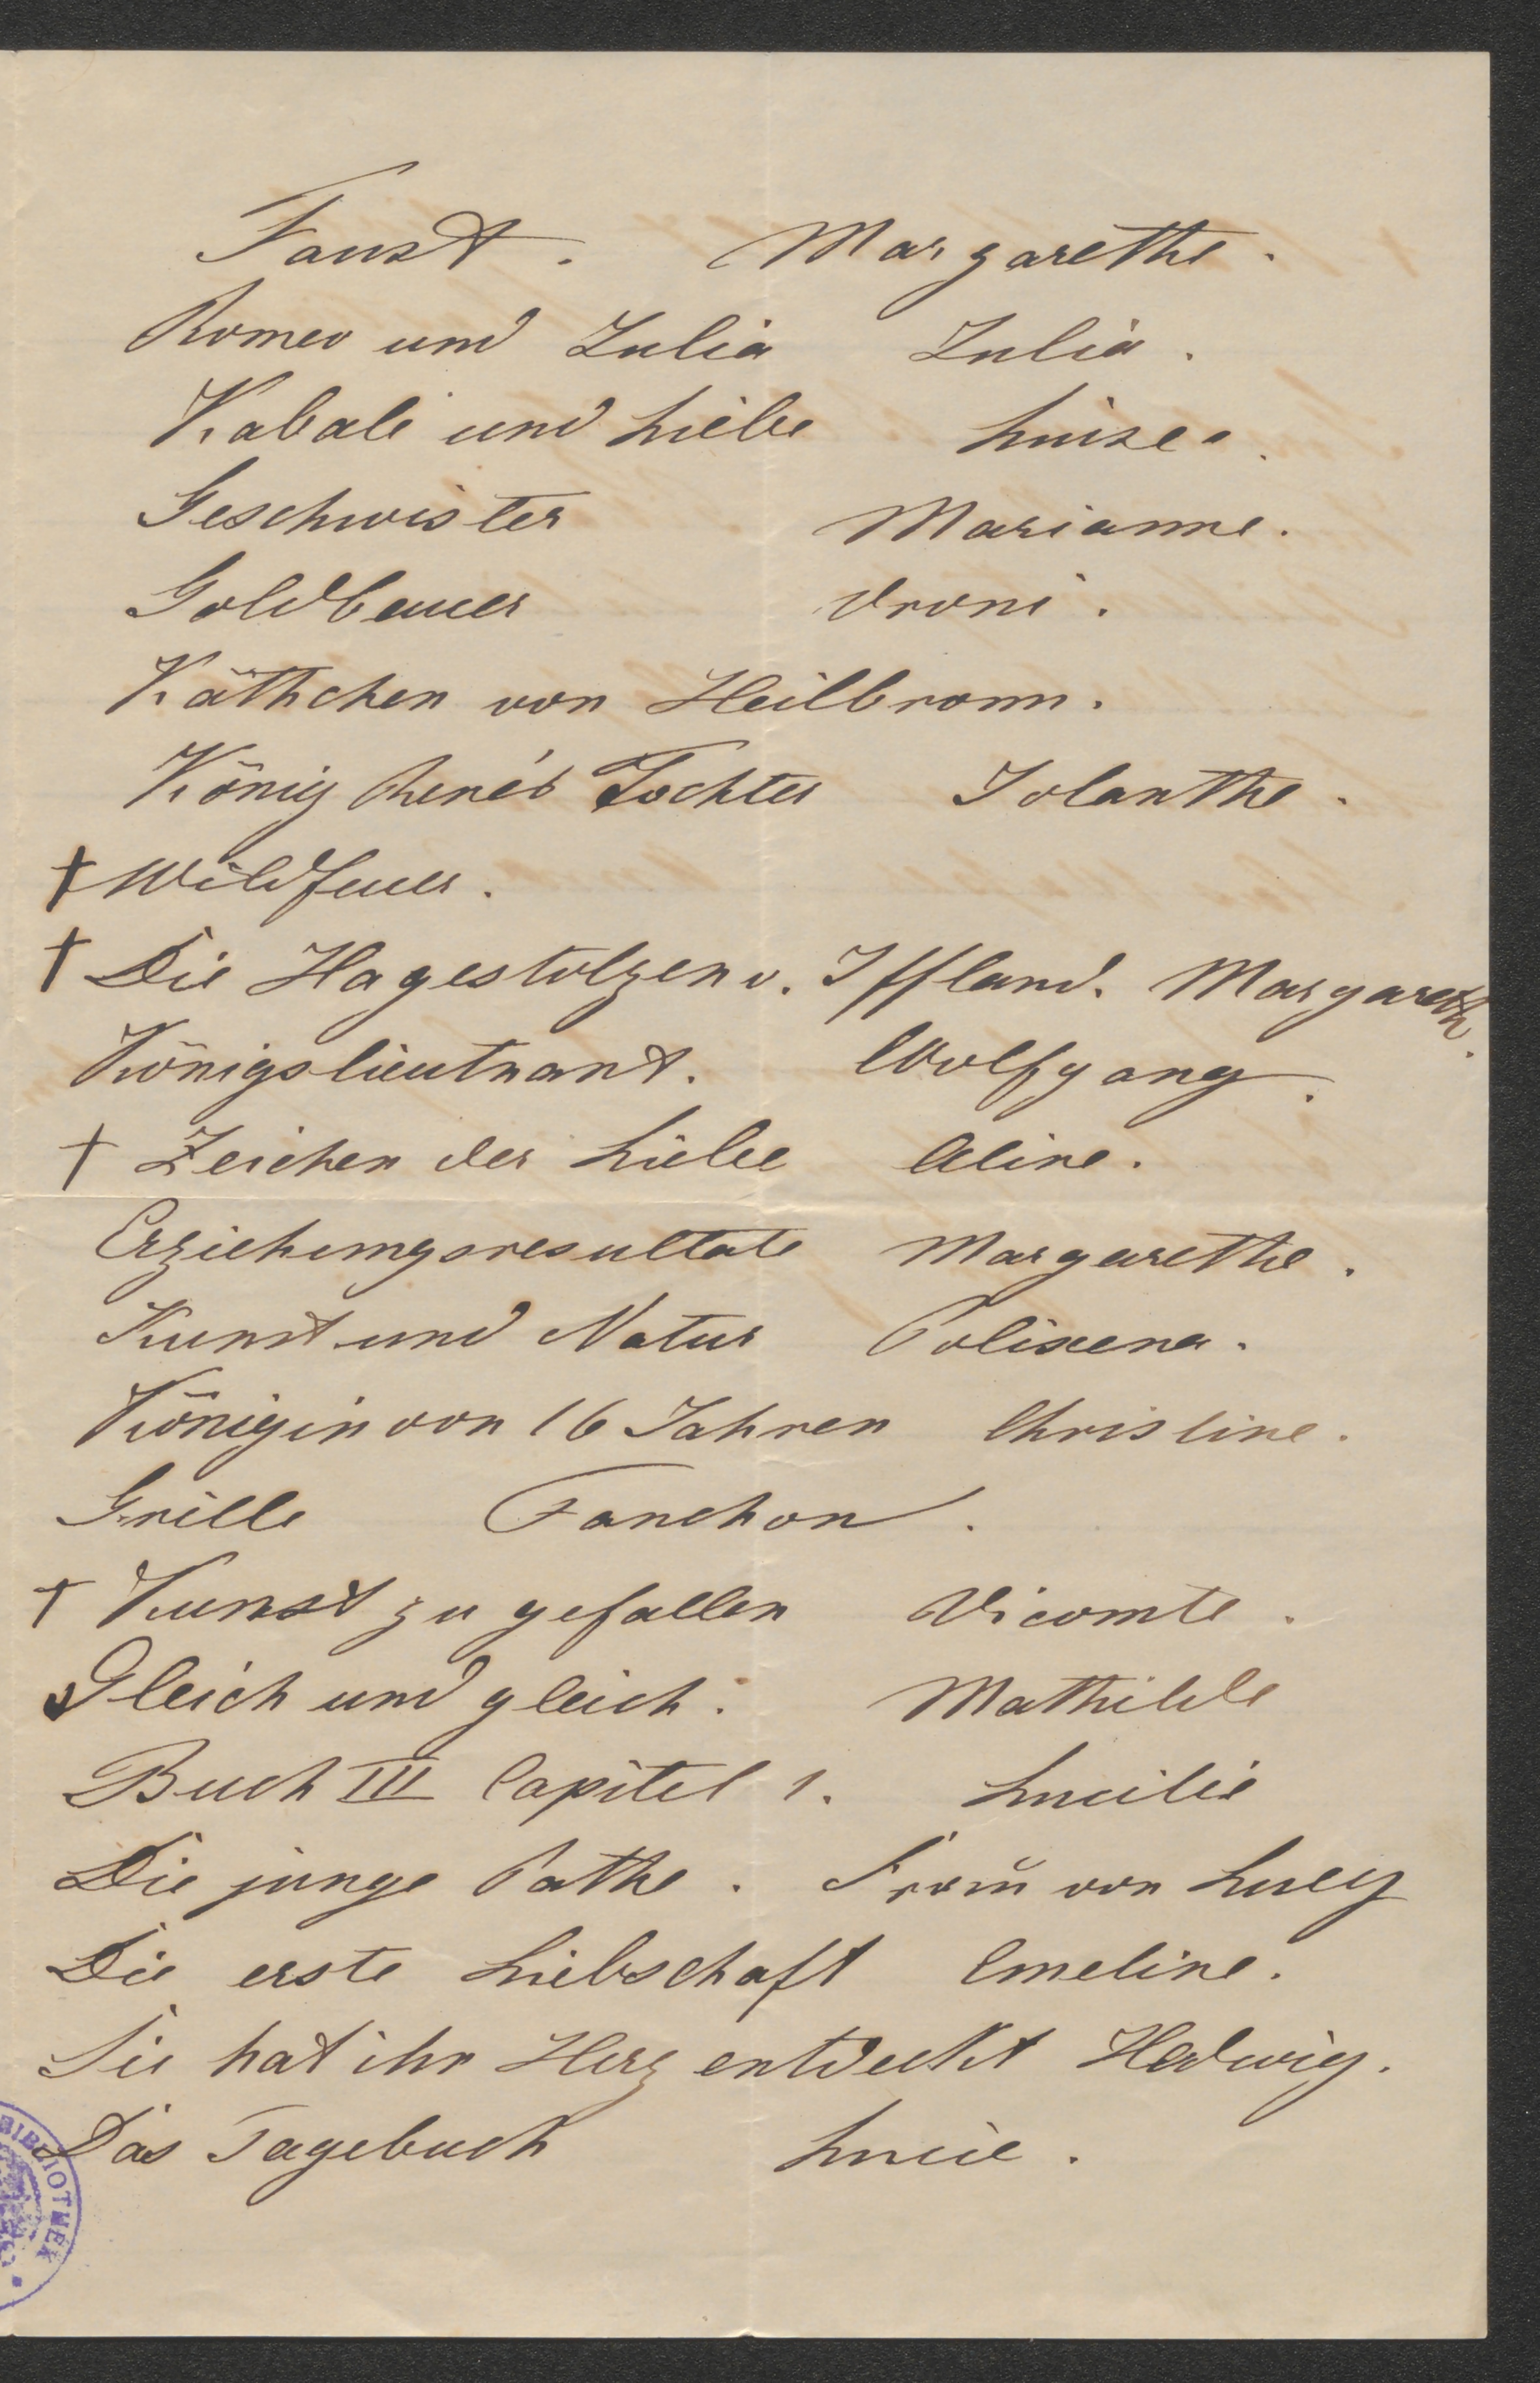 Faust. Margarethe.
Romeo und Julia Julia.
Kabale und Liebe Luise.
Geschwister Marianne.
Goldbauer Vroni.
Käthchen von Heilbronn.
König Rene's Tochter Jolanthe.
† Wildfeuer.
† Die Hagestolzen v. Iffland. Margareth.
Königslieutnant. Wolfgang.
† Zeichen der Liebe Aline.
Erziehungsresultate Margarethe.
Kunst und Natur Polixena.
Königin von 16 Jahren Christine.
Grille Fanchon.
† Kunst zu gefallen Vicomte.
Gleich und gleich. Mathilde
Buch III Capitel 1. Lucilie
Die junge Pathe. Frau von Lucy
Die erste Liebschaft Emeline.
Sie hat ihr Herz entdeckt Hedwig.
Das Tagebuch Lucie.
BIBLIOTHEK